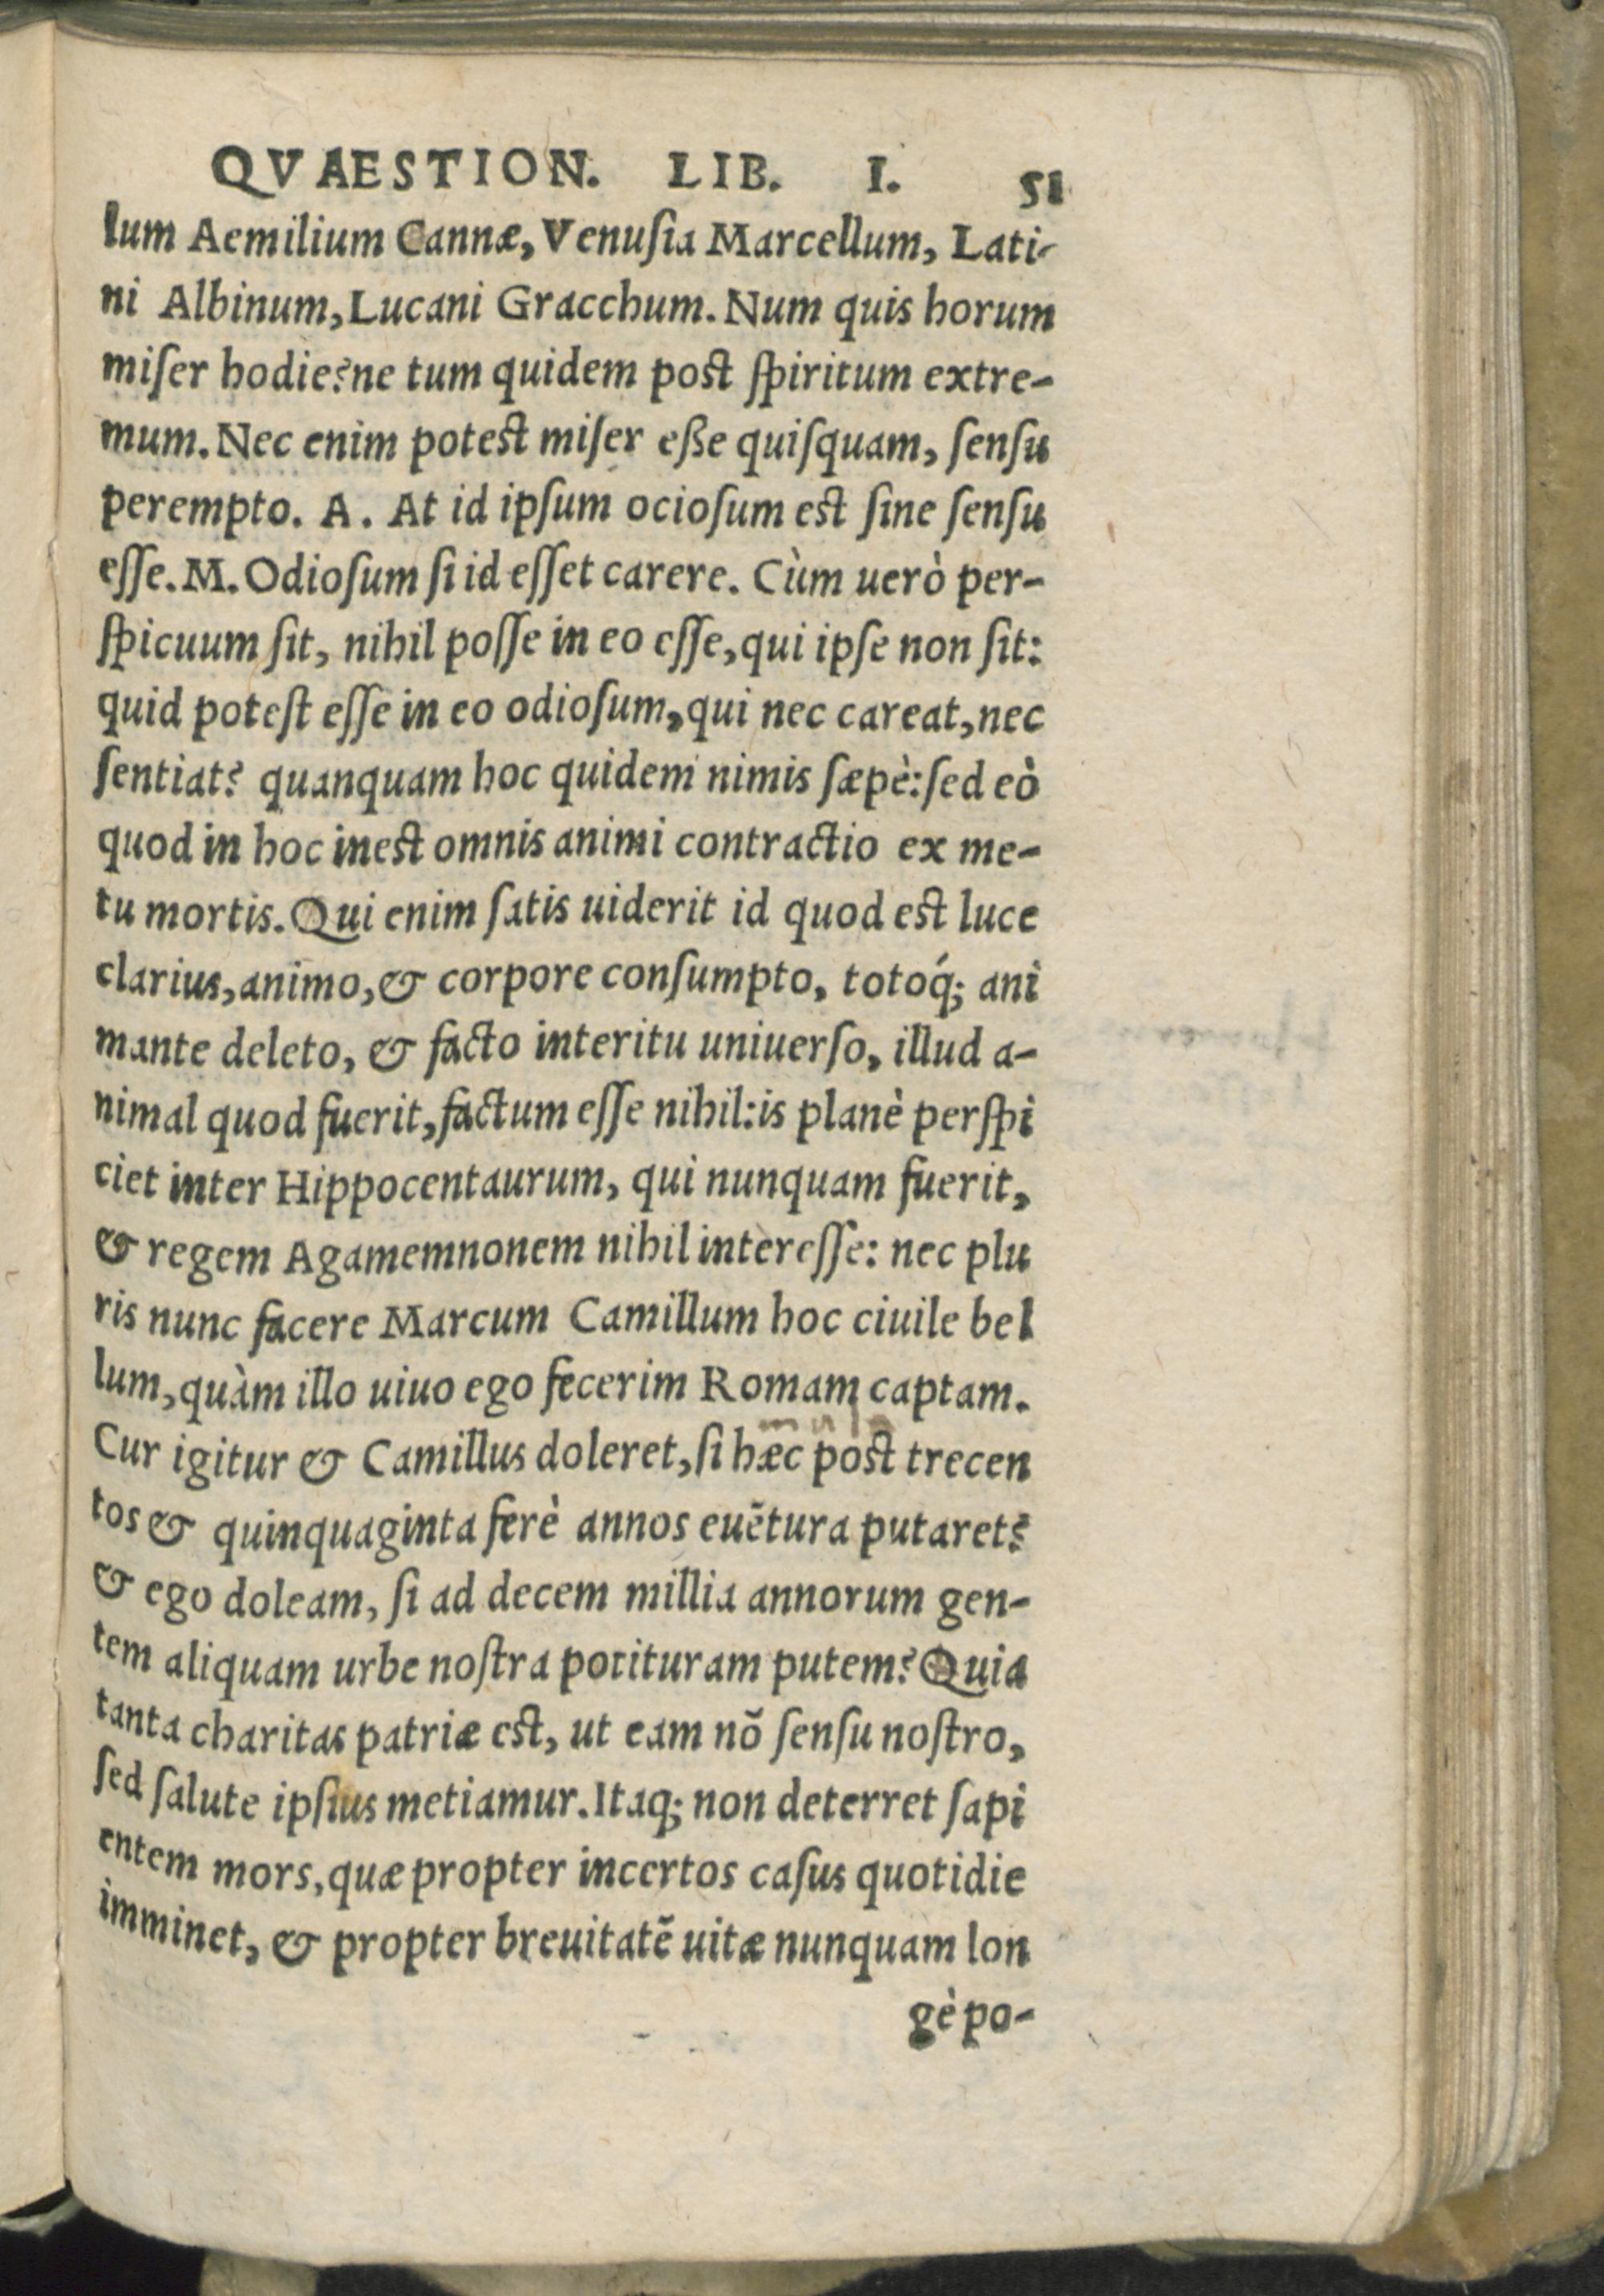 QVAESTION. LIB. I. 51
lum Aemilium Cannæ, Venuſia Marcellum, Lati-
ni Albinum, Lucani Gracchum. Num quis horum
miſer hodie? ne tum quidem post ſpiritum extre-
mum. Nec enim potest miſer eße quiſquam, ſenſu
perempto. A. At id ipſum ocioſum est ſine ſenſu
eſſe. M. Odioſum ſi id eſſet carere. Cùm uerò per-
ſpicuum ſit, nihil poſſe in eo eſſe, qui ipſe non ſit:
quid poteſt eſſe in eo odioſum, qui nec careat, nec
ſentiat? quanquam hoc quidem nimis ſæpè: ſed eò
quod in hoc inest omnis animi contractio ex me-
tu mortis. Qui enim ſatis uiderit id quod est luce
clarius, animo, & corpore conſumpto, totoq́; ani
mante deleto, & facto interitu uniuerſo, illud a-
nimal quod fuerit, factum eſſe nihil: is planè perſpi
ciet inter Hippocentaurum, qui nunquam fuerit,
& regem Agamemnonem nihil intereſſe: nec plu
ris nunc facere Marcum Camillum hoc ciuile bel
lum, quàm illo uiuo ego fecerim Romam captam.
Cur igitur & Camillus doleret, ſi hæc post trecen
tos & quinquaginta ferè annos euẽtura putaret?
& ego doleam, ſi ad decem millia annorum gen-
tem aliquam urbe noſtra potituram putem? Quia
tanta charitas patriæ est, ut eam nõ ſenſu noſtro,
ſed ſalute ipſius metiamur. Itaq; non deterret ſapi
entem mors, quæ propter incertos caſus quotidie
imminet, & propter breuitatẽ uitæ nunquam lon
gè po-